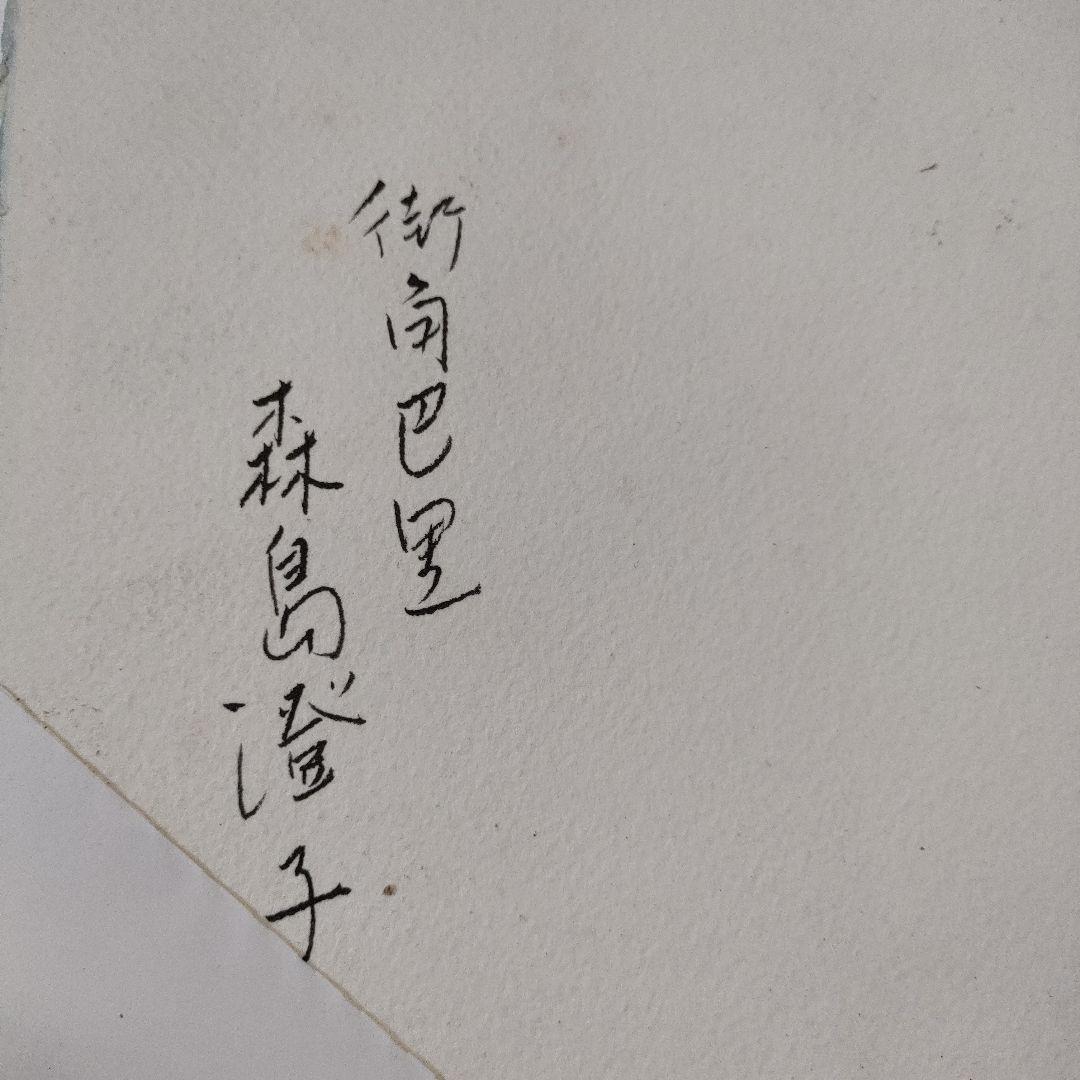 街角巴里
森島澄子